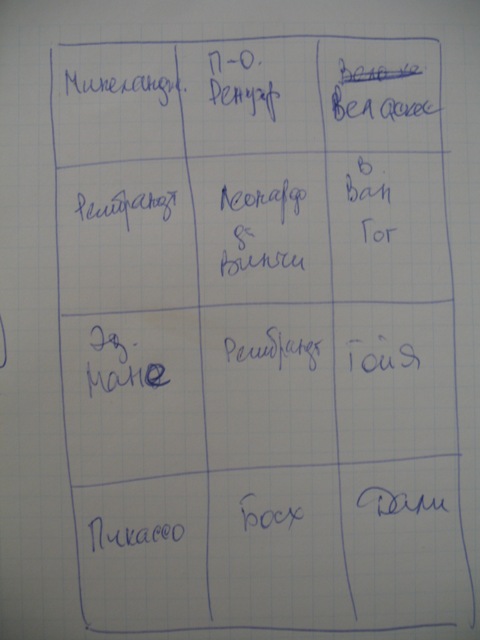 Микеландж.
П-О.
Ренуар
Веласкес
Рембрандт
Леонардо
да
Винчи
В.
Ван
Гог
Эд.
Мане
Рембрандт
Гойя
Пикассо
Босх
Дали